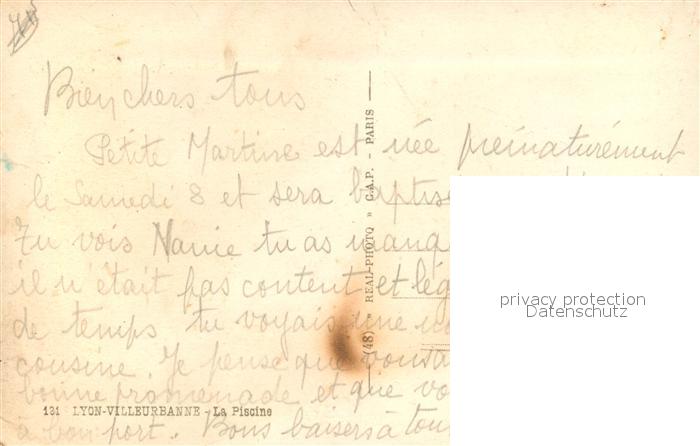 Bien chers tous
Petite Martine est née prématurément
le Samedi 8 et sera baptis
Tu vois Nanie tu as manq
il n'était pas content et lég
de temps tu voyais une
cousine. Je pense que vous
bonne promenade et que vo
à bon port. Bons baisers à tou
131 LYON-VILLEURBANNE - La Piscine
(48) » REAL-PHOTO » C.A.P. - PARIS
privacy protection
Datenschutz